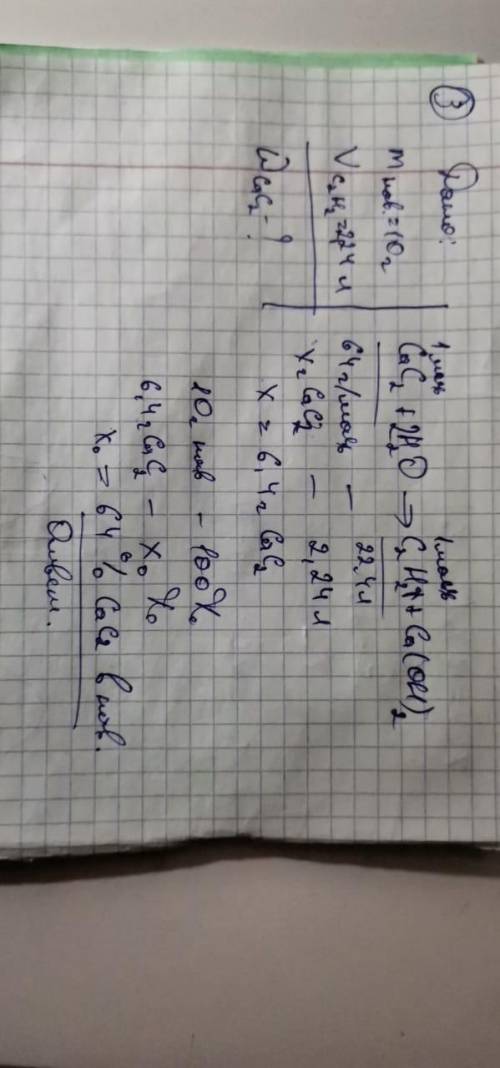 3
Дано:
m нав. = 10 г
V C₂H₂ = 2,24 л
W CaC₂ - ?
1 моль 1 моль
CaC₂ + 2H₂O → C₂H₂↑ + Ca(OH)₂
64 г/моль — 22,4 л
x г CaC₂ — 2,24 л
x = 6,4 г CaC₂
10 г нав - 100%
6,4 г CaC₂ - x₀ %
x₀ = 64% CaC₂ в нав.
Ответ.